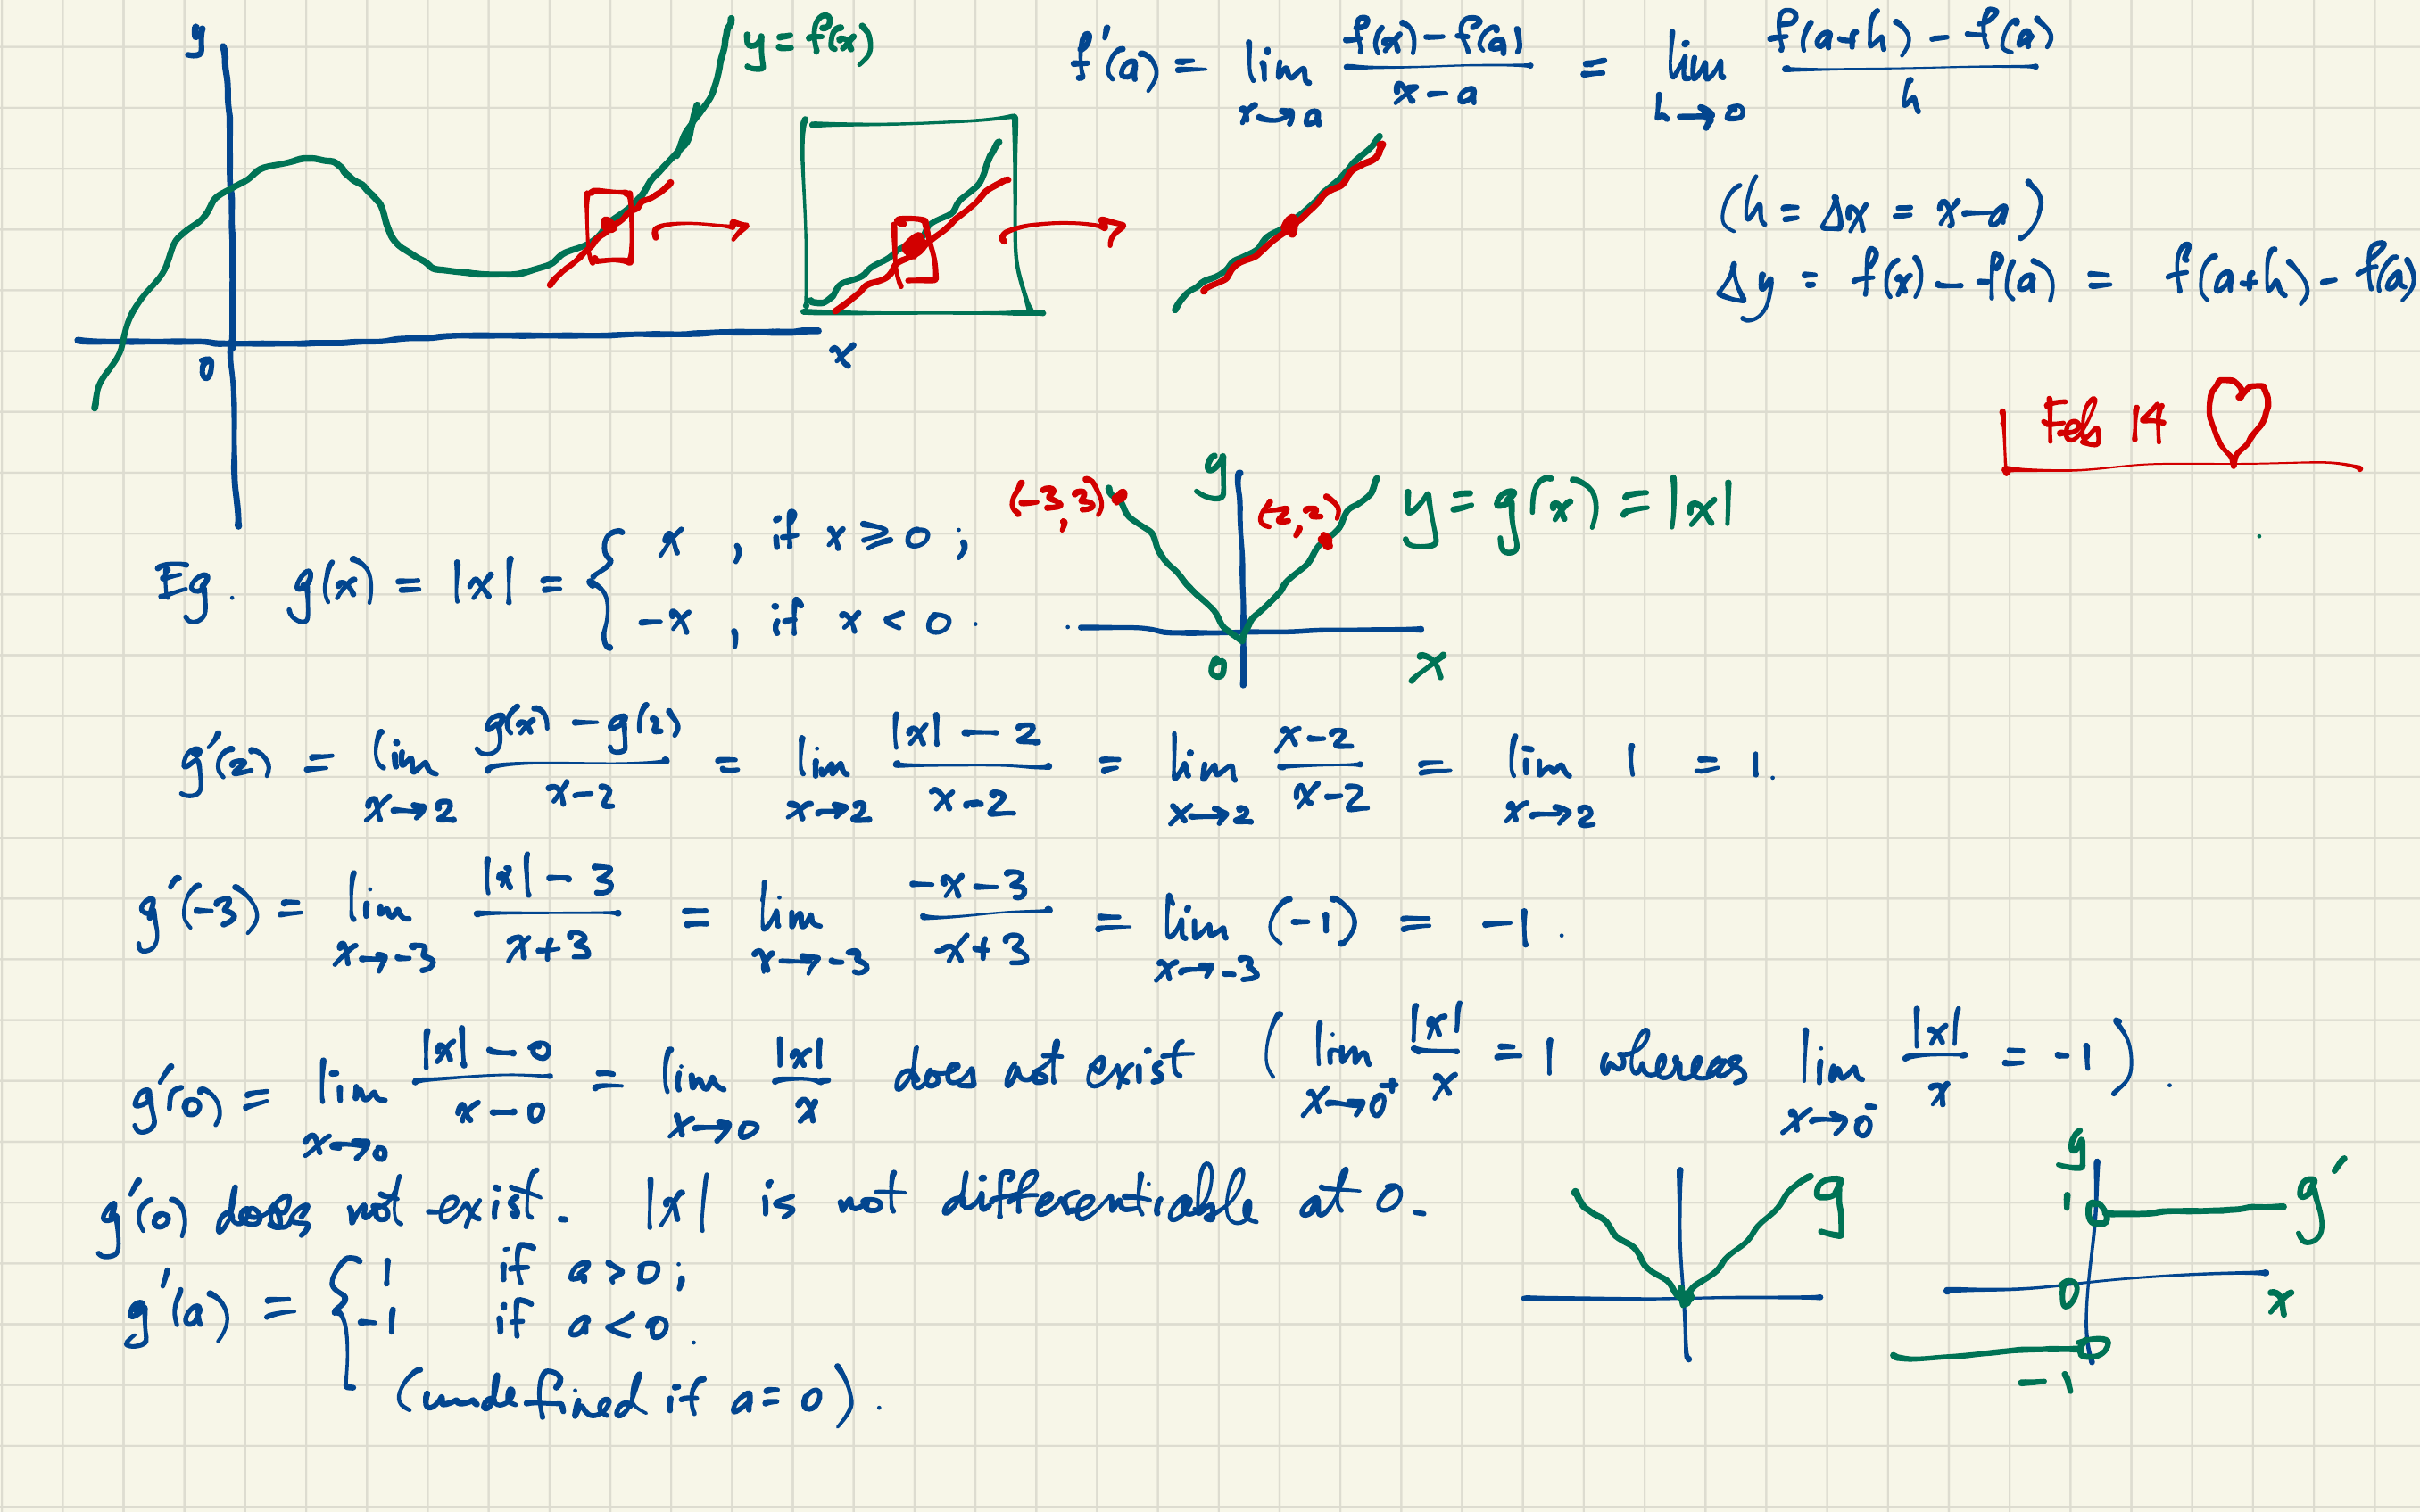 y
y = f(x)
f'(a) = lim x→a (f(x) − f(a))/(x − a) = lim h→0 (f(a+h) − f(a))/h
(h = Δx = x−a)
Δy = f(x) − f(a) = f(a+h) − f(a)
0
x
Feb 14 ♡
(-3,3)
y
(2,2)
y = g(x) = |x|
Eg. g(x) = |x| = { x , if x ≥ 0 ;
−x , if x < 0 .
0
x
g'(2) = lim x→2 (g(x) − g(2))/(x−2) = lim x→2 (|x| − 2)/(x−2) = lim x→2 (x−2)/(x−2) = lim x→2 1 = 1.
g'(−3) = lim x→−3 (|x| − 3)/(x+3) = lim x→−3 (−x−3)/(x+3) = lim x→−3 (−1) = −1.
g'(0) = lim x→0 (|x| − 0)/(x−0) = lim x→0 |x|/x does not exist (lim x→0⁺ |x|/x = 1 whereas lim x→0⁻ |x|/x = −1).
g'(0) does not exist. |x| is not differentiable at 0.
g
y
1
g'
0
x
−1
g'(a) = { 1 if a > 0 ;
−1 if a < 0 .
(undefined if a = 0).